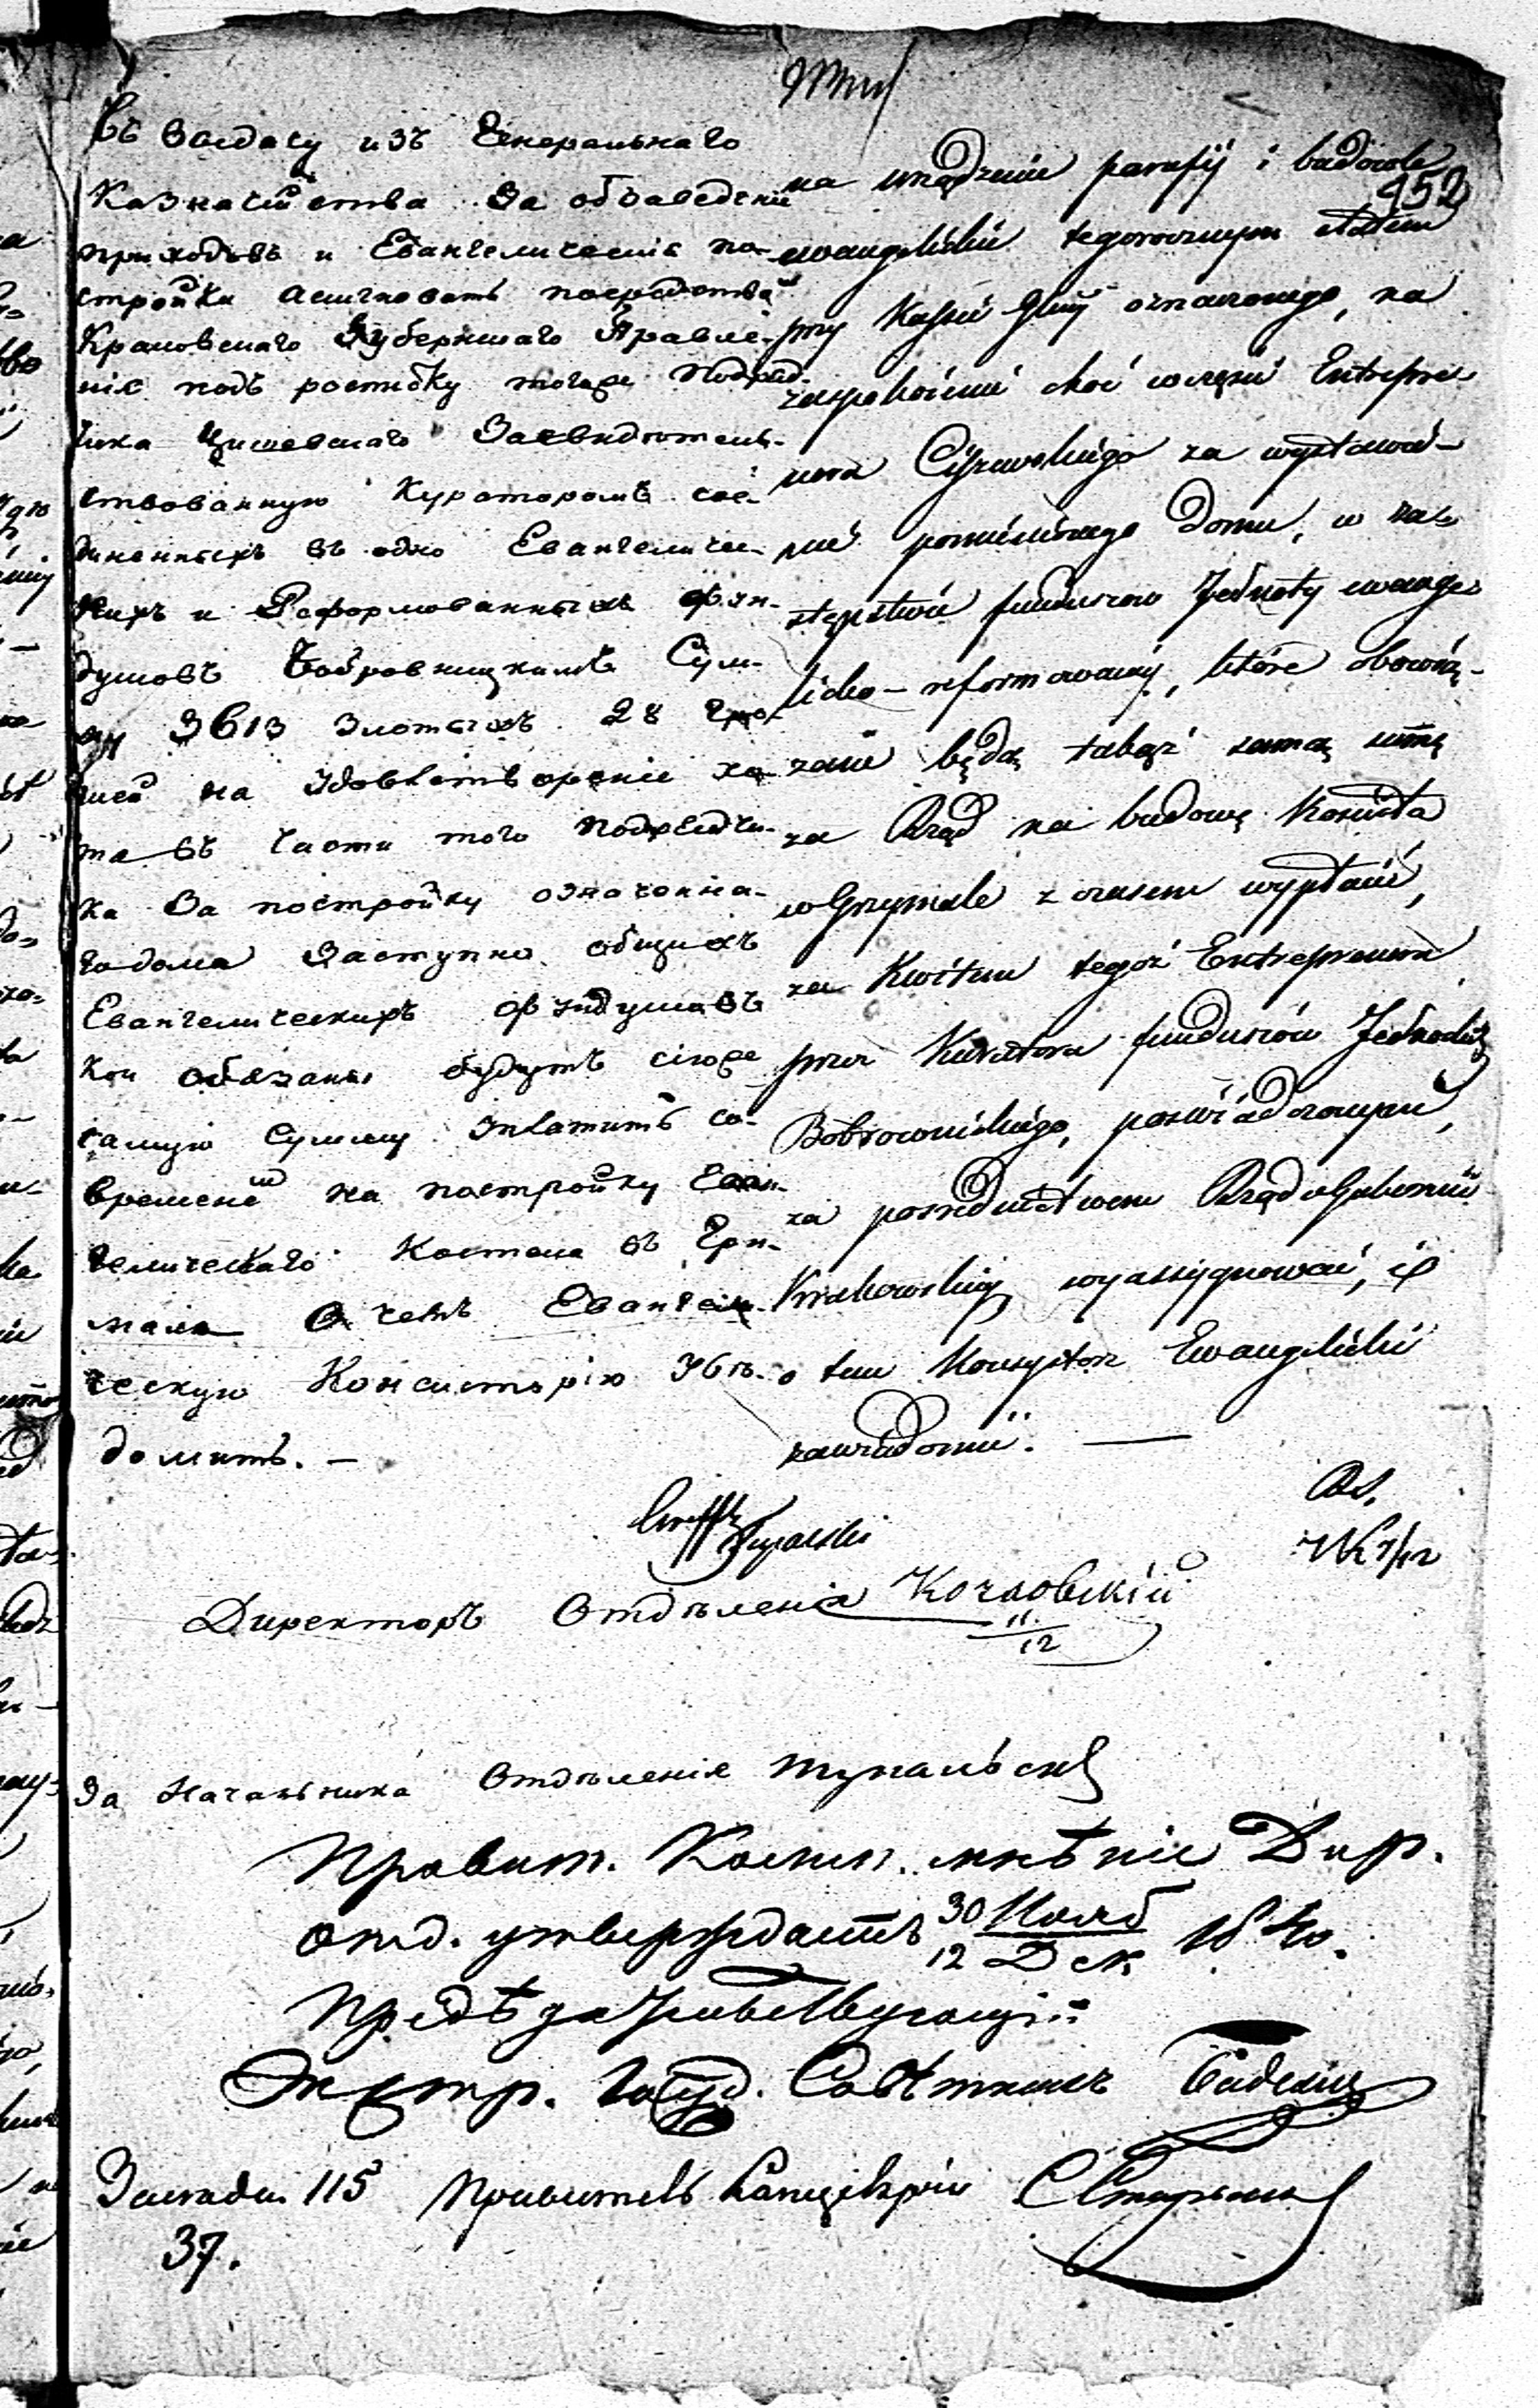 452
въ выдачу изъ Генеральнаго
Казначейства за обзаведеніе
приходовъ и Евангелическіе по-
стройки асигновать посредствомъ
Краковскаго Губернскаго Правле-
нія подъ росписку тогоже Подряд-
чика Цишевскаго Засвидѣтель-
ствованную Кураторомъ сое-
диненныхъ въ одно Евангеличес-
кихъ и Реформованныхъ фун-
душовъ Бобровницкимъ Сум-
му 3613 Злотыхъ 28 гро-
шей на удовлетвореніе хо-
тя въ части того Подрядчи-
ка За постройку означенна-
го дома Заступно общихъ
Евангелическихъ фундушовъ
кои обязаны будутъ сіюже
самую Сумму уплатить со
временемъ на постройку Еван-
гелическаго Костела въ Гри-
мала О чемъ Евангели-
ческую Консисторію Увѣ-
домить. —
na urządzenie parafij i budowle
ewangelickie tegorocznym etatem
przy Kassie Głnéj oznaczonego, na
zaspokoienie choć w części Entrepre-
nera Ciszewskiego za wystawie-
nie pomienionego Domu, w za-
stępstwie funduszow Jednoty ewange-
licko-reformowanéj, które obowią-
zane będą takąż samą summę
za Rząd na budowę Kościoła
w Grzymale z czasem wypłacić,
za Kwitem tegoż Entreprenera
przez Kuratora funduszów Jednoty
Bobrownickiego, poswiadczonym,
za posrednictwem Rządu Gubernii
Krakowskiéj wyassygnować, i
o tem Konsystorz Ewangelicki
zawiadomić. —
Директоръ Отдѣленія Кочловскій
11/12
За Начальника Отдѣленія Тупальскі
Правит. Комис. мнѣніе Дир.
отд. утверждаетъ 30 Нояб / 12 Дек 1840.
Предсѣдательствующій
Экстр. Госуд. Совѣтникъ
115 Правитель Канцеляріи
37.